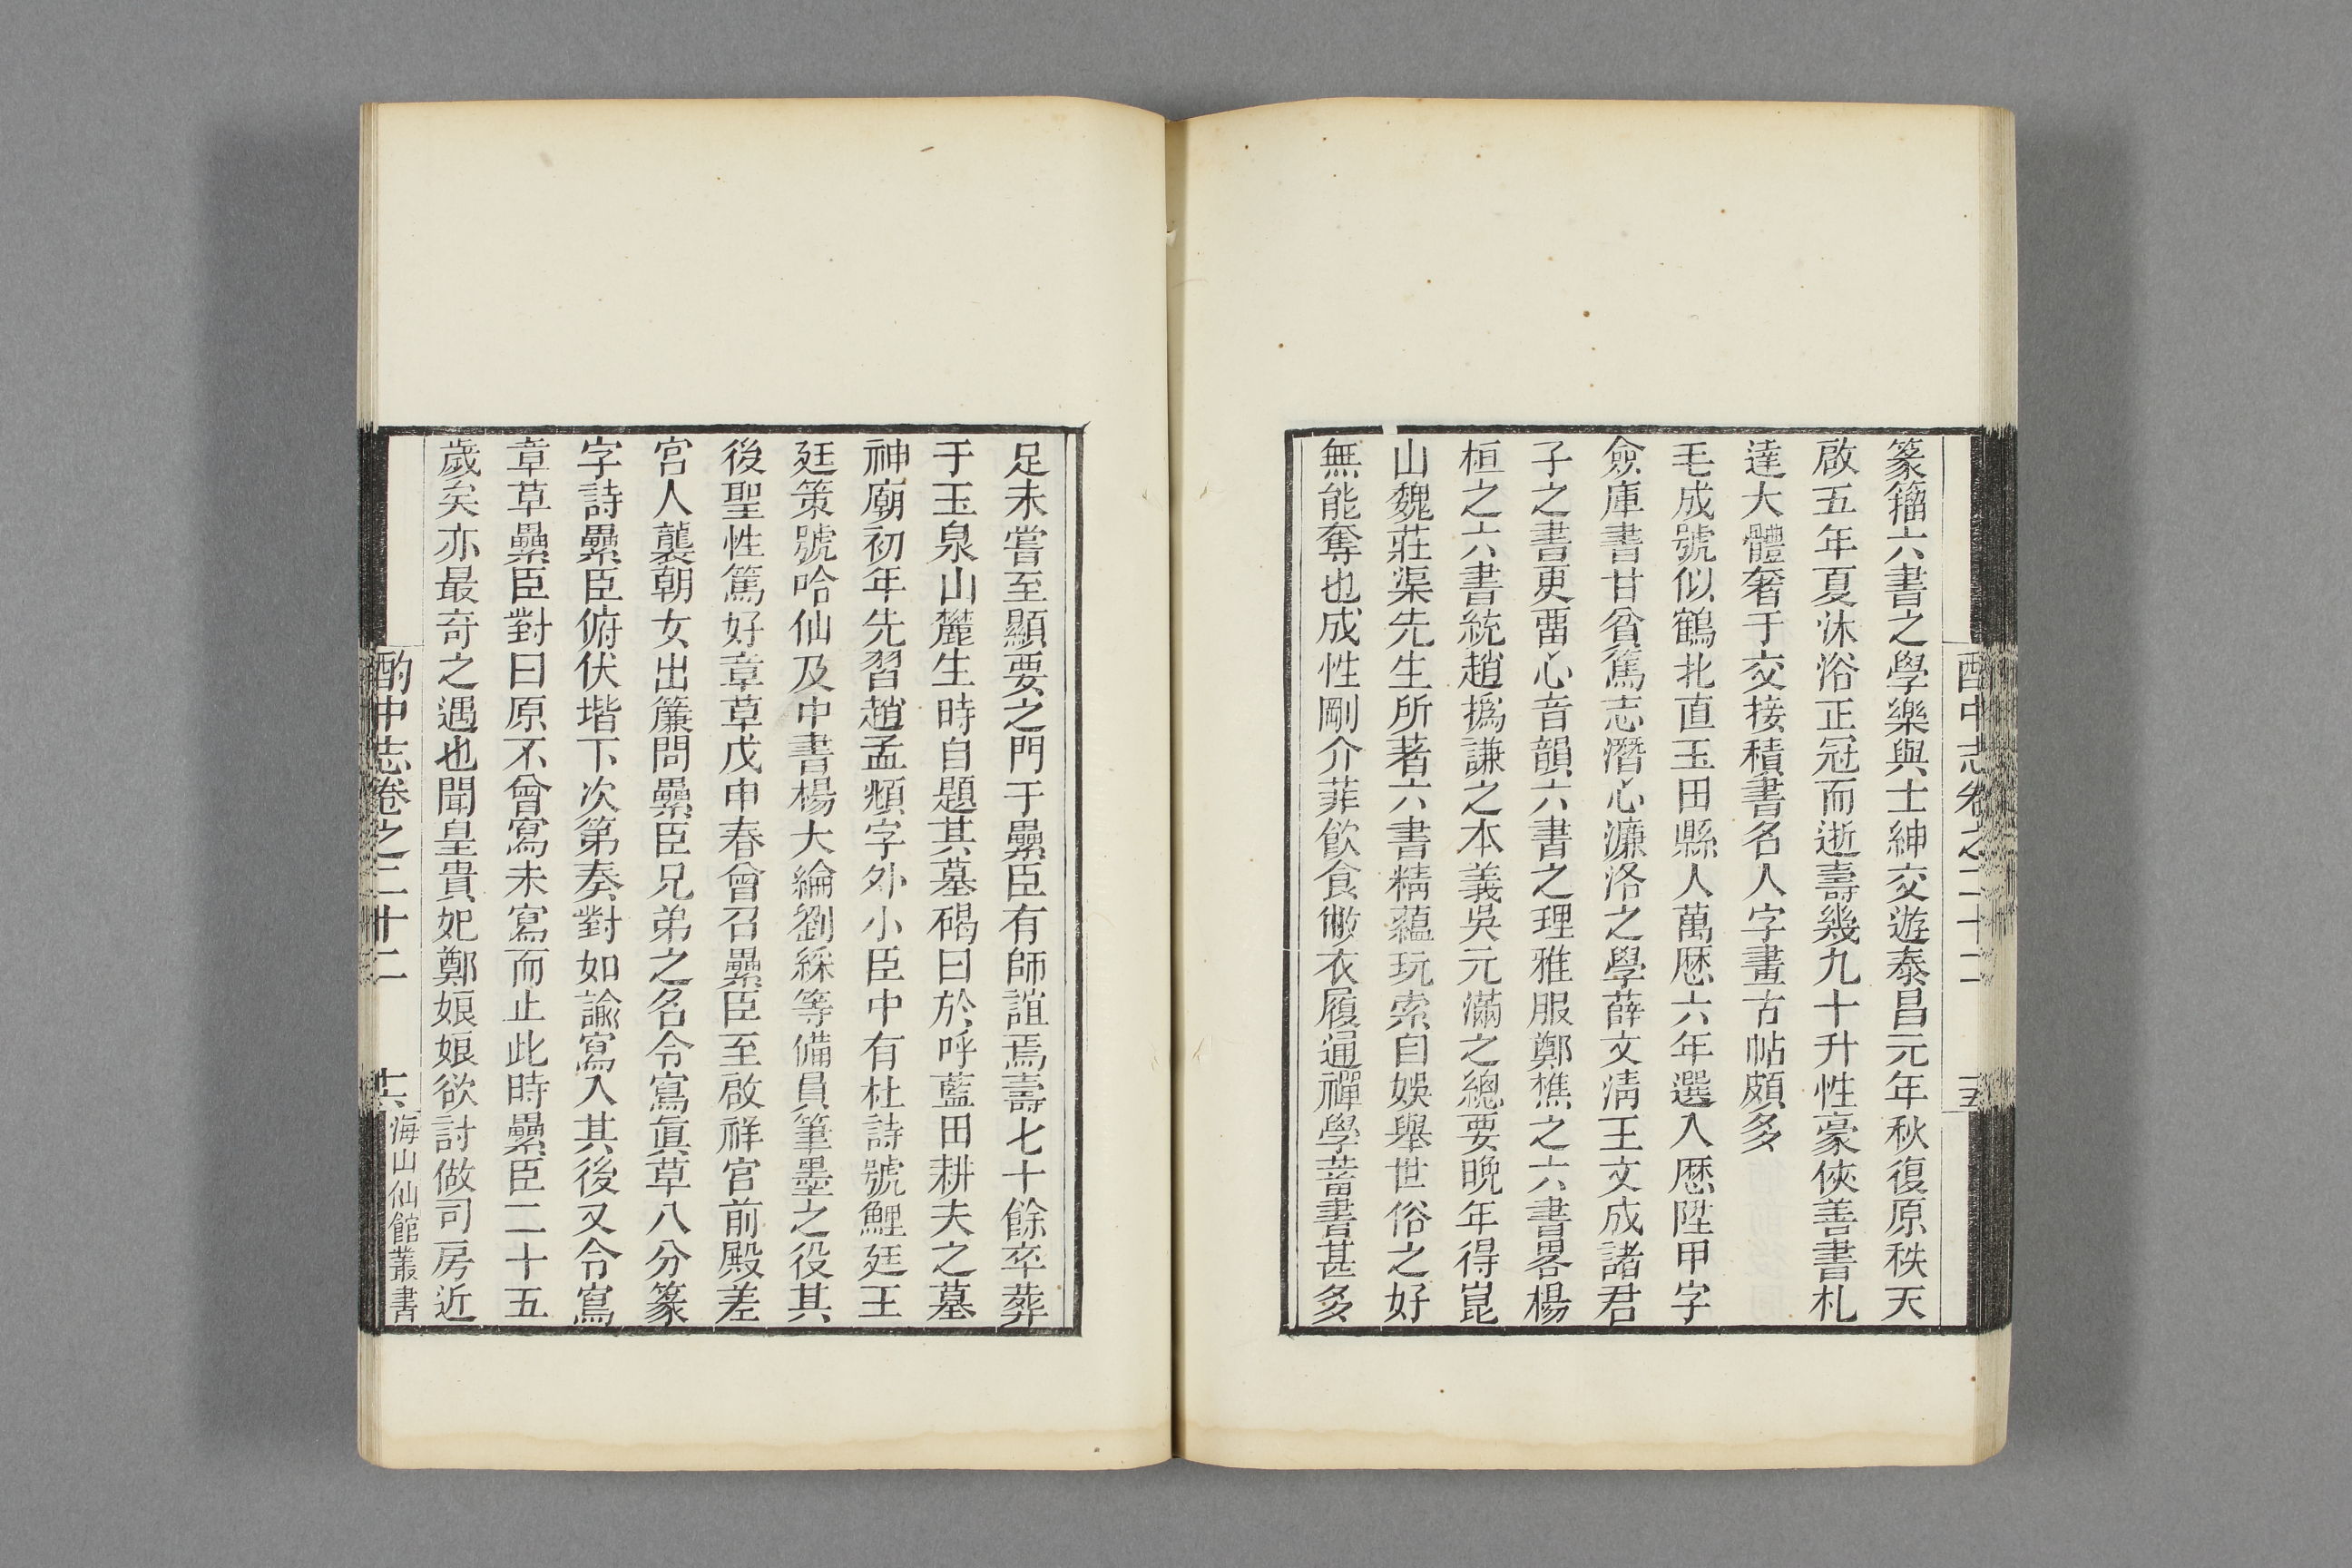 酌中志卷之二十二
十五
篆籀六書之學樂與士紳交遊泰昌元年秋復原秩天
啟五年夏沐浴正冠而逝壽幾九十升性豪俠善書札
達大體奢于交接積書名人字畫古帖頗多
毛成號似鶴北直玉田縣人萬厯六年選入厯陞甲字
僉庫書甘貧篤志潛心濂洛之學薛文淸王文成諸君
子之書更畱心音韻六書之理雅服鄭樵之六書畧楊
桓之六書統趙撝謙之本義吳元滿之總要晩年得崑
山魏莊渠先生所著六書精蘊玩索自娛舉世俗之好
無能奪也成性剛介菲飮食敝衣履通禪學蓄書甚多
足未嘗至顯要之門于纍臣有師誼焉壽七十餘卒葬
于玉泉山麓生時自題其墓碣曰於呼藍田耕夫之墓
神廟初年先習趙孟頫字外小臣中有杜詩號鯉廷王
廷策號哈仙及中書楊大綸劉綵等備員筆墨之役其
後聖性篤好章草戊申春曾召纍臣至啟祥宮前殿差
宮人襲朝女出簾問纍臣兄弟之名令寫眞草八分篆
字詩纍臣俯伏堦下次第奏對如諭寫入其後又令寫
章草纍臣對曰原不曾寫未寫而止此時纍臣二十五
歲矣亦最奇之遇也聞皇貴妃鄭娘娘欲討做司房近
酌中志卷之二十二
十六
海山仙館叢書